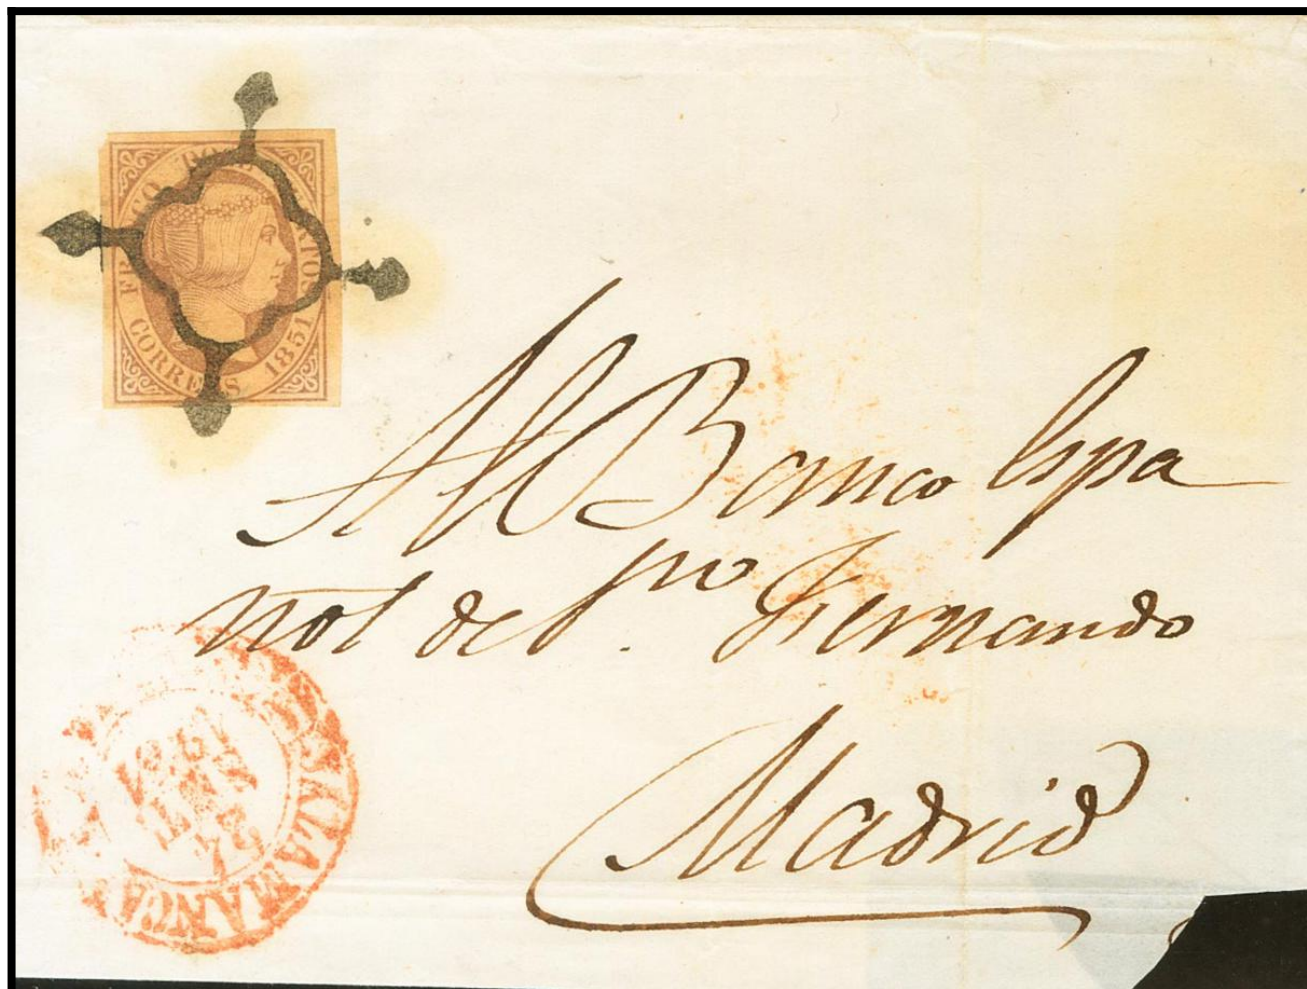 FR CO DOCE TOS
CORREOS 1851
Al Banco Espa
ñol de S.ⁿ Fernando
Madrid
SALAMANCA